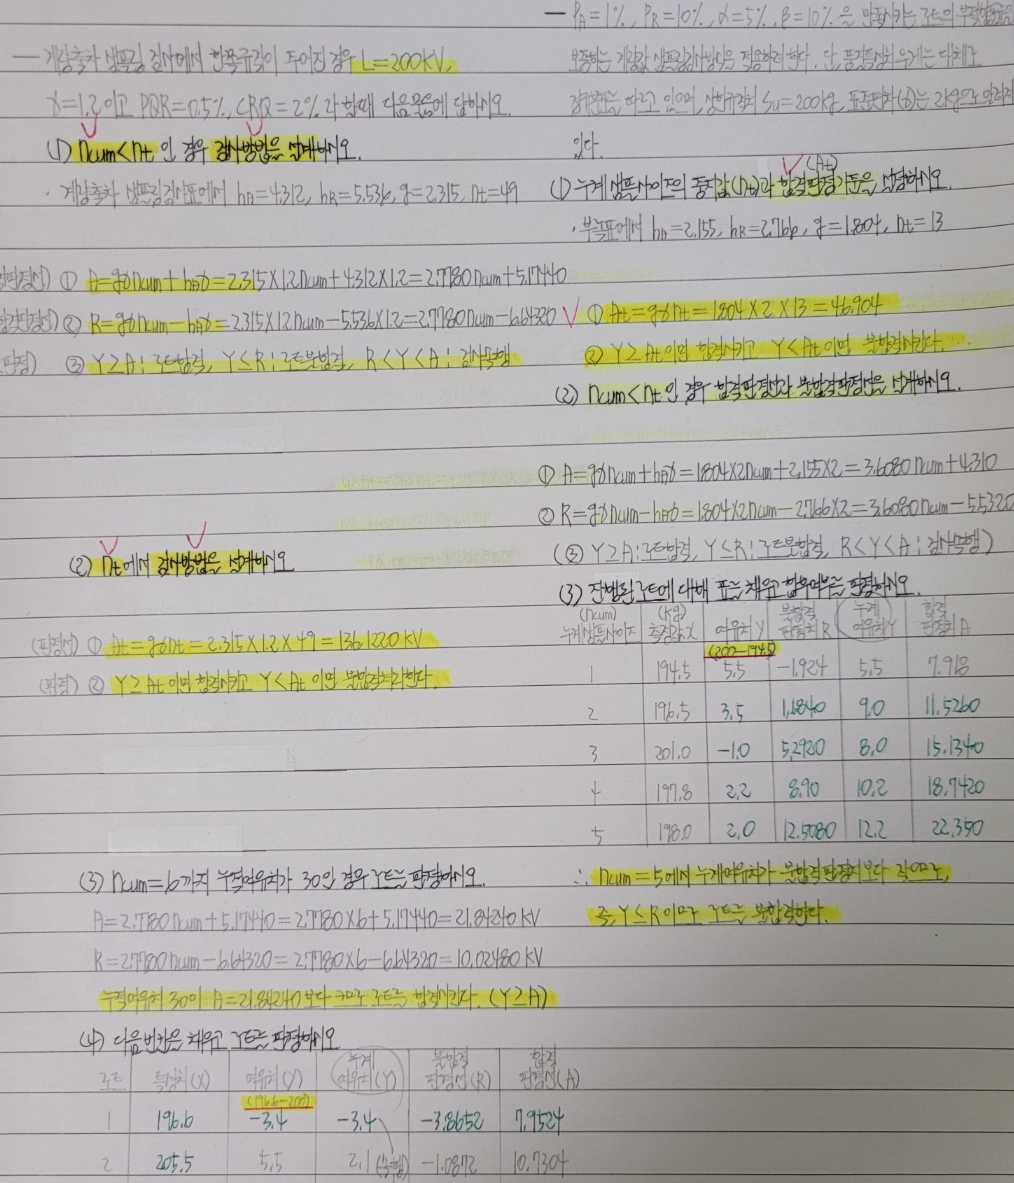 — 계량축차 샘플링 검사에서 한쪽규격이 주어진 경우 L=200kV,
σ=1.2이고 PRQ=0.5%, CRQ=2%라 할때 다음 물음에 답하시오.
(1) ncum<nt 인 경우 검사방법을 설계하시오.
· 계량축차 샘플링검사표에서 hA=4.312, hR=5.536, g=2.315, nt=49
① A=gσncum+hAσ=2.315×1.2ncum+4.312×1.2=2.7780ncum+5.17440
② R=gσncum-hRσ=2.315×1.2ncum-5.536×1.2=2.7780ncum-6.64320
③ Y≥A; 로트합격, Y≤R; 로트불합격, R<Y<A; 검사속행
(2) nt에서 검사방법을 설계하시오
(판정선) ① At=gσnt=2.315×1.2×49=136.1220kV
(판정) ② Y≥At이면 합격시키고 Y<At이면 불합격처리한다.
(3) ncum=6까지 누적여유치가 30인 경우 로트를 판정하시오.
A=2.7780ncum+5.17440=2.7780×6+5.17440=21.84240kV
R=2.7780ncum-6.64320=2.7780×6-6.64320=10.02480kV
누적여유치 30이 A=21.84240보다 크므로 로트를 합격시킨다. (Y≥A)
(4) 다음 빈칸을 채우고 로트를 판정하시오
로트 특성치(X) 여유치(Y) 누계여유치(Y) 불합격판정선(R) 합격판정선(A)
(196.6-200)
1 196.6 -3.4 -3.4 -3.8652 7.9524
2 205.5 5.5 2.1(속행) -1.0872 10.7304
— PA=1%, PR=10%, α=5%, β=10%을 만족시키는 로트의 부적합품률을
보증하는 계량값 샘플링검사방식을 적용하려 한다. 단 품질특성치 무게는 대체로
정규분포를 따르고 있으며, 상한규격치 Su=200kg, 표준편차(σ)는 2kg으로 알려져
있다.
(At)
(1) 누계 샘플사이즈의 중지값(nt)과 합격판정기준을 설정하시오.
· 부록표에서 hA=2.155, hR=2.766, g=1.804, nt=13
① At=gσnt=1.804×2×13=46.904
② Y≥At이면 합격시키고 Y<At이면 불합격시킨다.
(2) ncum<nt인 경우 합격판정선과 불합격판정선을 설계하시오.
① A=gσncum+hAσ=1.804×2ncum+2.155×2=3.6080ncum+4.310
② R=gσncum-hRσ=1.804×2ncum-2.766×2=3.6080ncum-5.5320
(③ Y≥A:로트합격, Y≤R;로트불합격, R<Y<A; 검사속행)
(3) 진행된 로트에 대해 표를 채우고 합부여부를 판정하시오.
(ncum) 누계샘플사이즈 (kg) 측정값x 여유치Y 불합격판정치R 누계여유치Y 합격판정치A
(200-194.5)
1 194.5 5.5 -1.924 5.5 7.918
2 196.5 3.5 1.6840 9.0 11.5260
3 201.0 -1.0 5.2920 8.0 15.1340
4 197.8 2.2 8.90 10.2 18.7420
5 198.0 2.0 12.5080 12.2 22.350
∴ ncum=5에서 누계여유치가 불합격판정치보다 작으므로,
즉 Y≤R이므로 로트를 불합격한다.